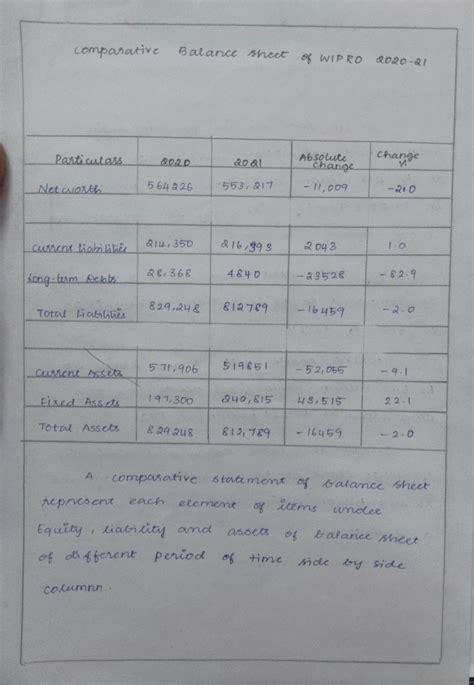 Comparative Balance sheet of WIPRO 2020-21
Particulars 2020 2021 Absolute Change Change %
Networth 564226 553,217 -11,009 -2.0
Current liabilities 214,350 216,393 2043 1.0
Long-term Debts 28,368 4840 -23528 -82.9
Total Liabilities 829,248 812789 -16459 -2.0
Current Assets 571,906 519851 -52,055 -9.1
Fixed Assets 197,300 240,815 43,515 22.1
Total Assets 829248 812,789 -16459 -2.0
A comparative statement of balance sheet
represent each element of items under
Equity, liability and assets of balance sheet
of different period of time side by side
column.